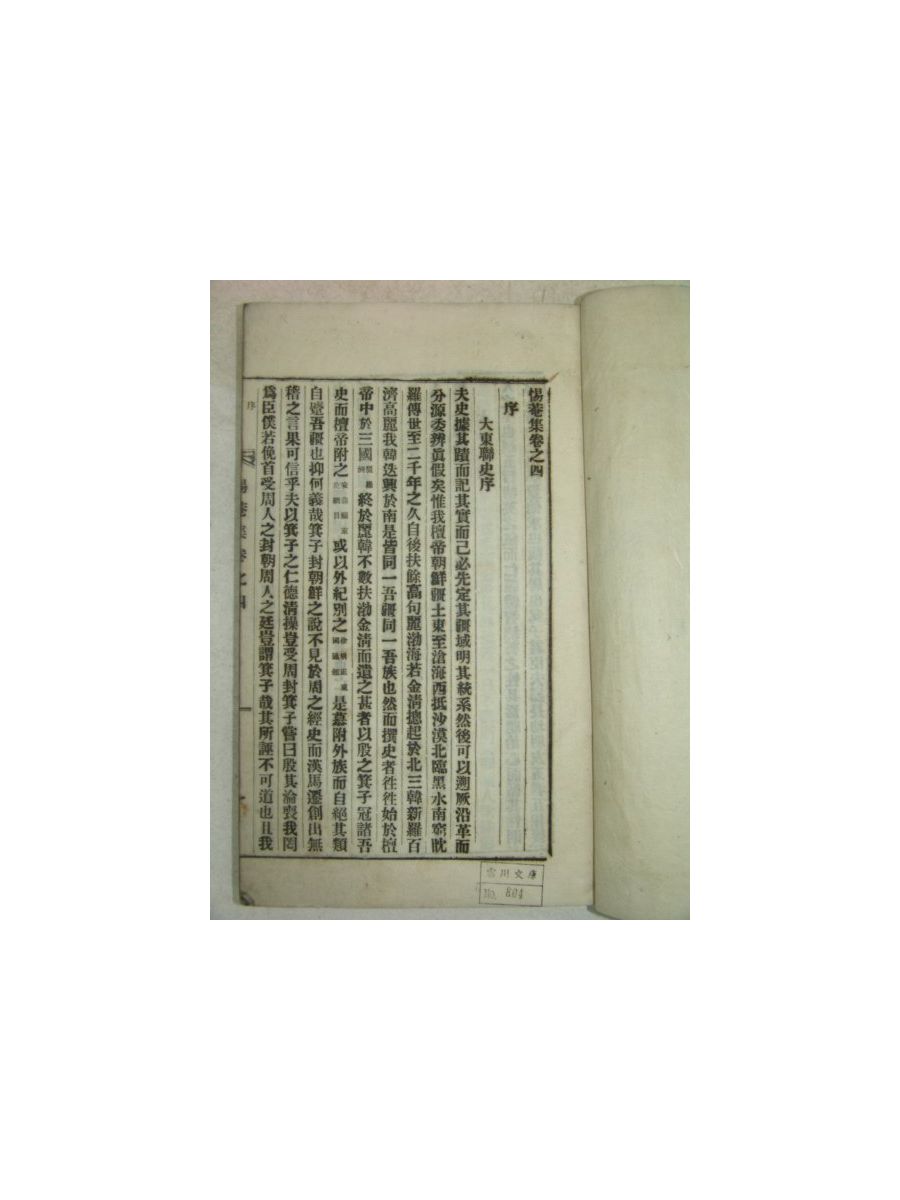 惕菴集卷之四
序
大東聯史序
夫史據其蹟而記其實而已必先定其疆域明其統系然後可以遡厥沿革而
分源委辨眞假矣惟我檀帝朝鮮疆土東至滄海西抵沙漠北臨黑水南窮眈
羅傳世至二千年之久自後扶餘高句麗渤海若金淸摠起於北三韓新羅百
濟高麗我韓迭興於南是皆同一吾疆同一吾族也然而撰史者徃徃始於檀
帝中於三國 終於麗韓不數扶渤金淸而遺之甚者以殷之箕子冠諸吾
史而檀帝附之 或以外紀別之 是慕附外族而自絕其類
自蹙吾疆也抑何義哉箕子封朝鮮之說不見於周之經史而漢馬遷創出無
稽之言果可信乎夫以箕子之仁德淸操豈受周封箕子嘗曰殷其淪喪我罔
爲臣僕若俛首受周人之封朝周人之廷豈謂箕子哉其所誣不可道也且我
序
惕菴集卷之四
一
川文庫
No. 804